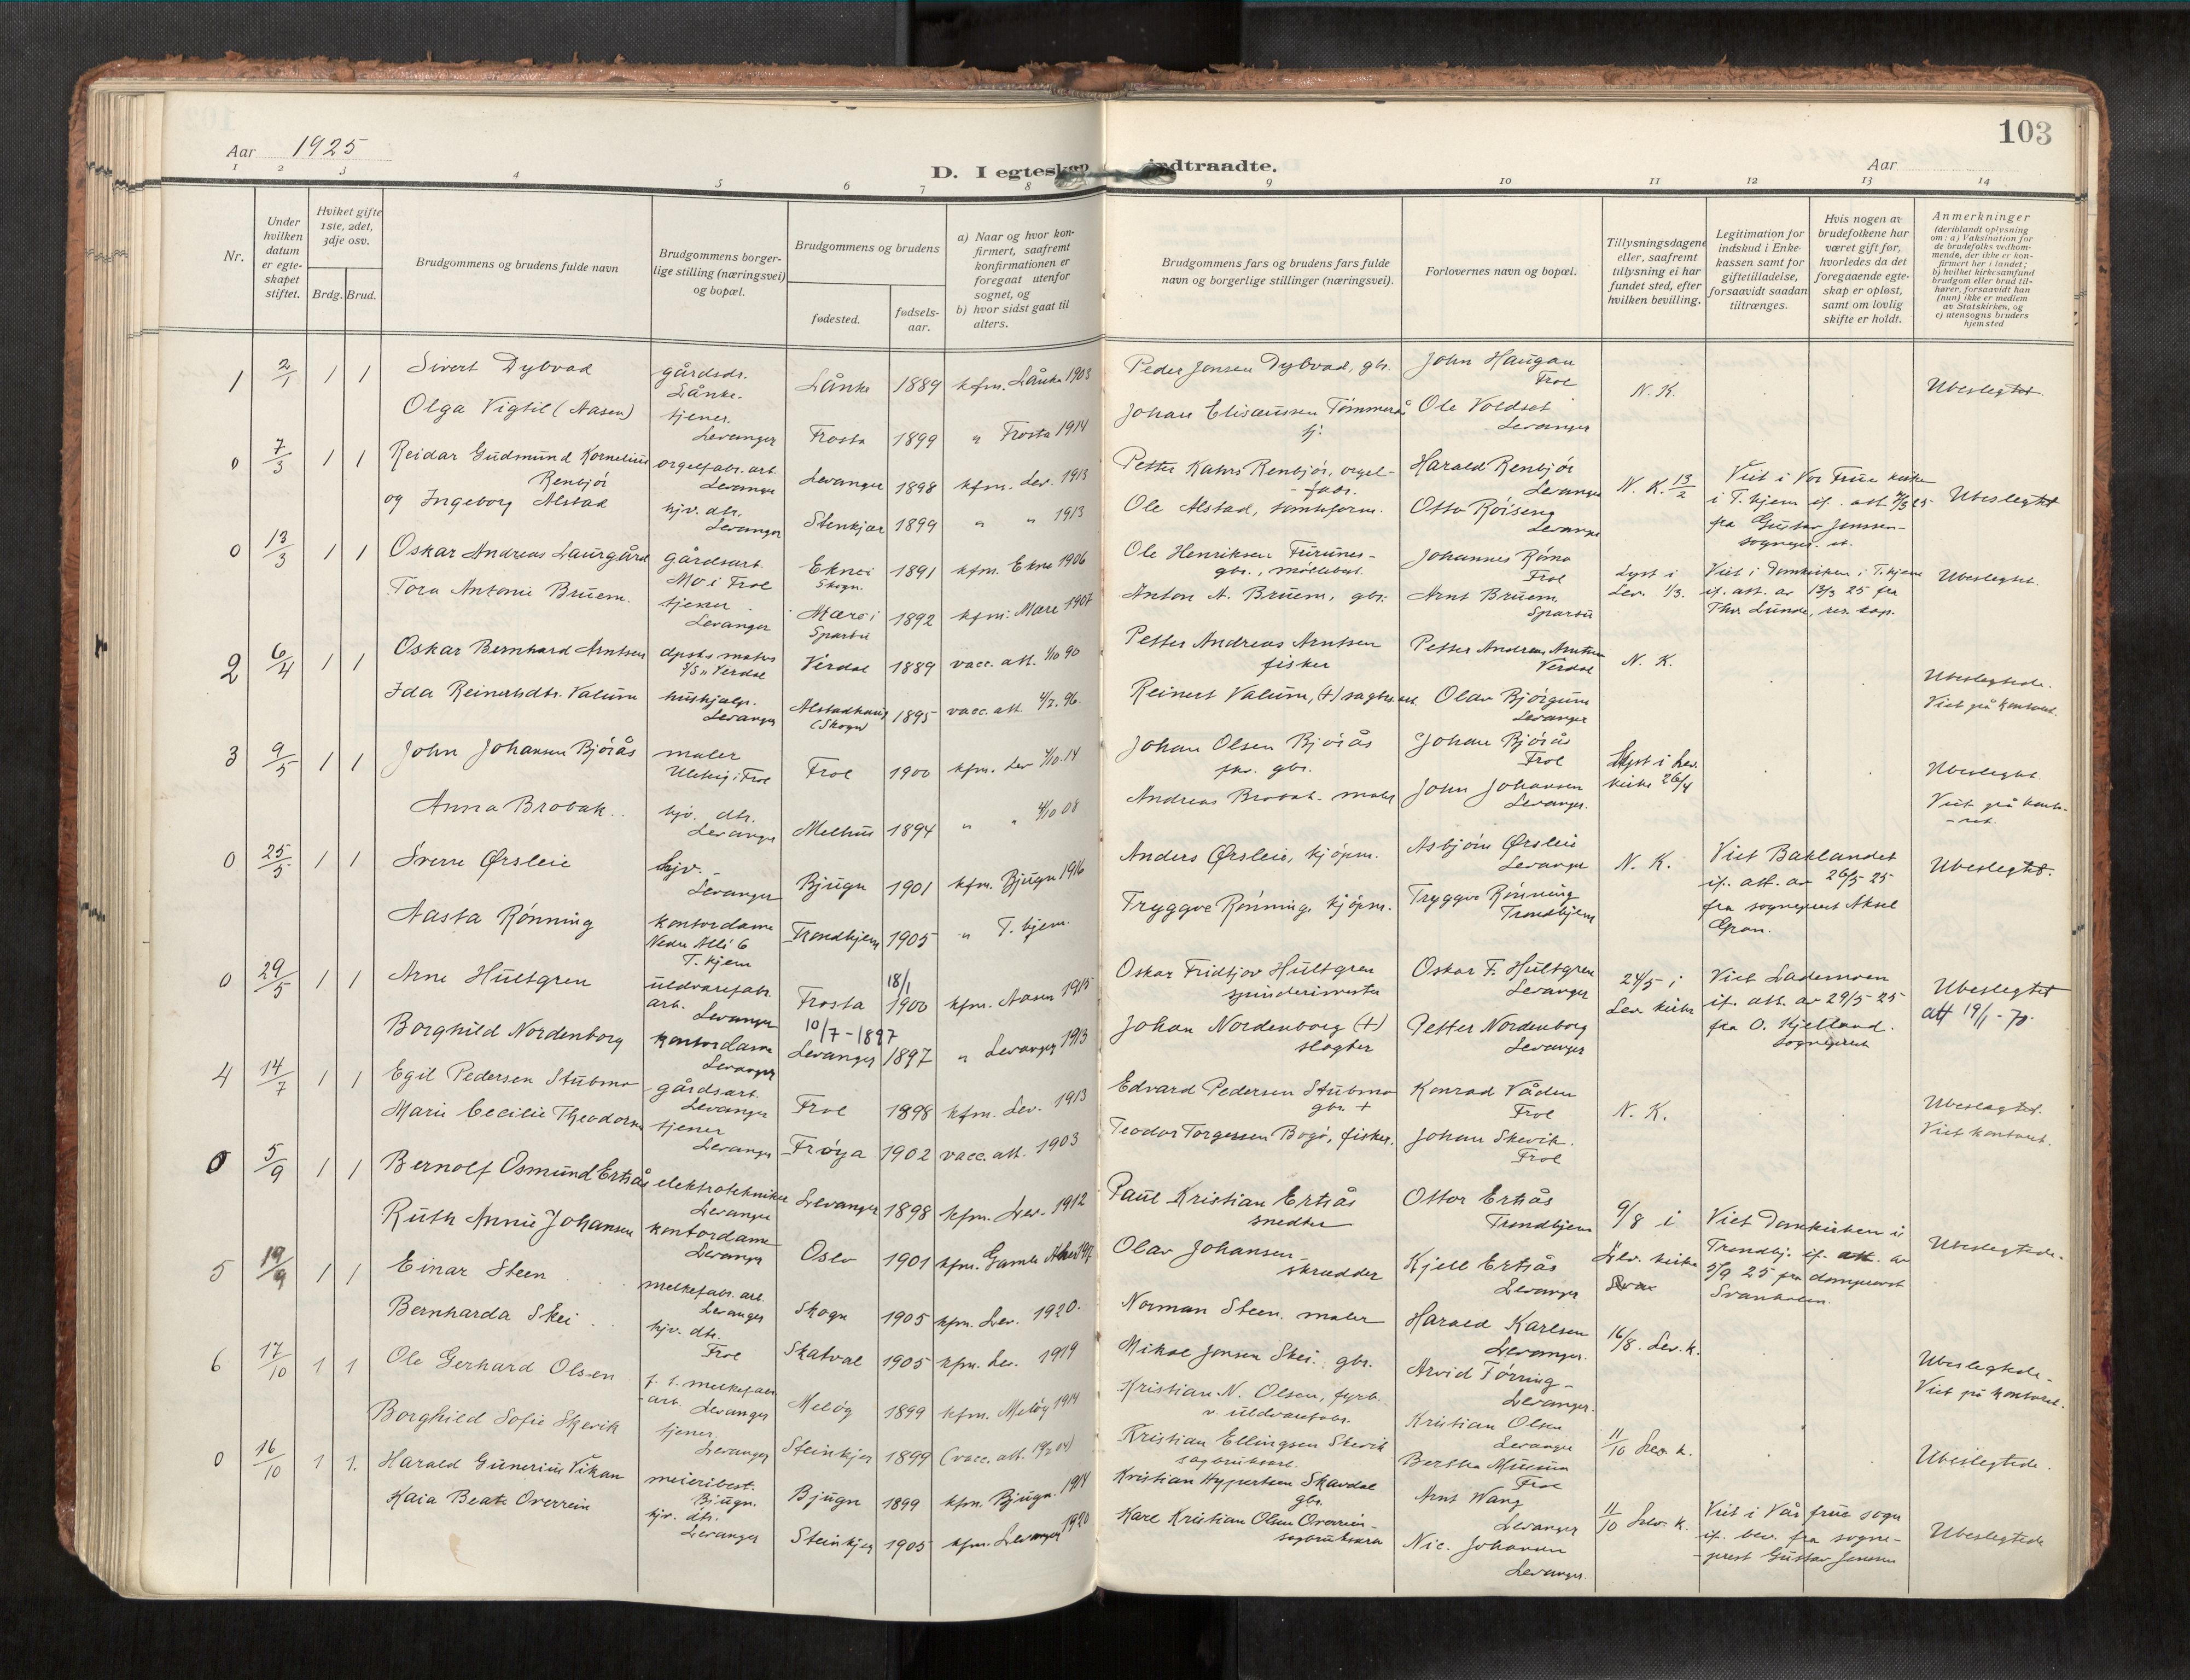 103
Aar 1925
D. I egteskap indtraadte.
Aar
1 2 3 4 5 6 7 8 9 10 11 12 13 14
Nr.
Under hvilken datum er egteskapet stiftet.
Hviket gifte 1ste, 2det, 3dje osv.
Brdg. Brud.
Brudgommens og brudens fulde navn
Brudgommens borgerlige stilling (næringsvei) og bopæl.
Brudgommens og brudens
fødested.
fødselsaar.
a) Naar og hvor konfirmert, saafremt konfirmationen er foregaat utenfor sognet, og
b) hvor sidst gaat til alters.
Brudgommens fars og brudens fars fulde navn og borgerlige stillinger (næringsvei).
Forlovernes navn og bopæl.
Tillysningsdagene eller, saafremt tillysning ei har fundet sted, efter hvilken bevilling.
Legitimation for indskud i Enkekassen samt for giftetilladelse, forsaavidt saadan tiltrænges.
Hvis nogen av brudefolkene har været gift før, hvorledes da det foregaaende egteskap er opløst, samt om lovlig skifte er holdt.
Anmerkninger (deriblandt oplysning om: a) Vaksination for de brudefolks vedkommende, der ikke er konfirmert her i landet; b) hvilket kirkesamfund brudgom eller brud tilhører, forsaavidt han (hun) ikke er medlem av Statskirken, og c) utensogns bruders hjemsted
1 2/1 1 1 Sivert Dybvad gårdsdr. Lånke. Lånke 1889 kfm. Lånke 1903 Peder Jonsen Dybvad, gbr. John Haugan Frol N. K. Ubeslegtet
Olga Vigtil (Aasen) tjener. Levanger Frosta 1899 " Frosta 1914 Johan Elisæussen Tømmerås Ole Voldset Levanger
0 7/3 1 1 Reidar Gudmund Kornelius Renbjör orgelfabr. arb. Levanger Levanger 1898 kfm. Lev. 1913 Petter Kahrs Renbjör, orgelfabr. Harald Renbjör Levanger N. K. 13/2 Viet i Vor Frue kirke i T.hjem if. att. 7/3 25 fra Gustav Jenssen sognepr. Ubeslegtet
og Ingeborg Alstad hjv. dtr. Levanger Stenkjær 1899 " " 1913 Ole Alstad, Otto Röiseng Levanger
0 13/3 1 1 Oskar Andreas Laurgård gårdsarb. Mo i Frol Ekne i Skogn. 1891 kfm. Ekne 1906 Ole Henriksen Furunes gbr., Johannes Römo Frol Lyst i Lev. 1/3. Viet i Domkirken i T.hjem if. att. av 13/3 25 fra Thv. Lunde, res. kap. Ubeslegtet.
Tora Antonie Bruem. tjener Levanger Mære i Sparbu 1892 kfm. Mære 1907 Anton A. Bruem, gbr. Arnt Bruem Sparbu
2 6/4 1 1 Oskar Bernhard Arntsen S/S "Verdal Verdal 1889 vacc. att. 1/10 90 Petter Andreas Arntsen fisker Petter Andreas Arntsen Verdal N. K. Ubeslegtede.
Ida Reinertsdtr. Valum hushjælp. Levanger Alstadhaug (Skogn) 1895 vacc. att. 4/7. 96. Reinert Valum, (+) sagbr.arb. Olav Bjørgum Levanger Viet på kontoret.
3 9/5 1 1 John Johansen Bjørås maler i Frol Frol 1900 kfm. Lev 4/10.14 Johan Olsen Bjørås gbr. Johan Bjørås Frol Lyst i Lev. kirke 26/4 Ubeslegtet.
Anna Brobak. hjv. dtr. Levanger Melhus 1894 " " 4/10 08 Andreas Brobak maler John Johansen Levanger. Viet på kontoret.
0 25/5 1 1 Sverre Ørsleie hjv. Levanger Bjugn 1901 kfm. Bjugn 1916 Anders Ørsleie, kjöpm. Asbjörn Ørsleie Levanger N. K. Viet Baklandet if. att. av 26/5 25 fra sogneprest Aksel Gran. Ubeslegtet.
Aasta Rønning kontordame Nedre Allé 6 T.hjem Trondhjem 1905 " T.hjem. Tryggve Rønning, kjöpm. Tryggve Rønning Trondhjem
0 29/5 1 1 Arne Hultgren uldvarefabr. arb. Levanger Frosta 18/1 1900 kfm. Aasen 1915 Oskar Fridtjov Hultgren spinderimester Oskar F. Hultgren Levanger 24/5 i Lev. kirke Viet Lademoen if. att. av 29/5 25 fra O. Kjelland. sogneprest Ubeslegtet att 19/1 - 70.
Borghild Nordenborg kontordame Levanger 10/7 - 1897 Levanger 1897 " Levanger 1913 Johan Nordenborg (+) slagter Petter Nordenborg Levanger
4 14/7 1 1 Egil Pedersen Stubmo gårdsarb. Levanger Frol 1898 kfm. Lev. 1913 Edvard Pedersen Stubmo gbr. + Konrad Våden Frol N. K. Ubeslegtet.
Marie Cecilie Theodorsen tjener Levanger Frøya 1902 vacc. att. 1903 Teodor Torgersen Bogö, fisker. Johan Skevik. Frol Viet kontoret.
0 5/9 1 1 Bernolf Osmund Ertsås elektrotekniker Levanger Levanger 1898 kfm. Lev. 1912 Paul Kristian Ertsås snedker Ottor Ertsås Trondhjem 9/8 i Lev. kirke Viet Domkirken i Trondhj. if. att. av 5/9 25 fra domprovst Svanholm. Ubeslegtede.
Ruth Annie Johansen kontordame Levanger Oslo 1901 kfm. Gamle Aker 1917 Olav Johansen skrædder Kjell Ertsås Levanger
5 19/9 1 1 Einar Steen melkefabr. arb. Levanger Skogn 1905 kfm. Lev. 1920. Norman Steen, maler Harald Karlsen Levanger. 16/8. Lev. k. Ubeslegtede.
Bernharda Skei hjv. dtr. Frol Skatval 1905 kfm. Lev. 1919 Mikal Jensen Skei, gbr. Arvid Förring Levanger. Viet på kontoret.
6 17/10 1 1 Ole Gerhard Olsen f. t. melkefabr. arb. Levanger Melöy 1899 kfm. Melöy 1914 Kristian N. Olsen, fyrb. v. uldvarefabr. Kristian Olsen Levanger 11/10 Lev. k. Ubeslegtede.
Borghild Sofie Skevik tjener Levanger Steinkjer 1899 (vacc. att. 19/2 04) Kristian Ellingsen Skevik sagbruksarb. Bertha Musum Frol
0 16/10 1 1. Harald Gunerius Vikan meieribest. Bjugn. Bjugn 1899 kfm. Bjugn. 1914 Kristian Hypertsen Skavdal gbr. Arnt Wang Levanger 11/10 Lev. k. Viet i Vår frue sogn if. bev. fra sogneprest Gustav Jenssen Ubeslegtede
Kaia Beate Overrein hjv. dtr. Levanger Steinkjer 1905 kfm. Levanger 1920 Karl Kristian Olsen Overrein Nic. Johansen Levanger.